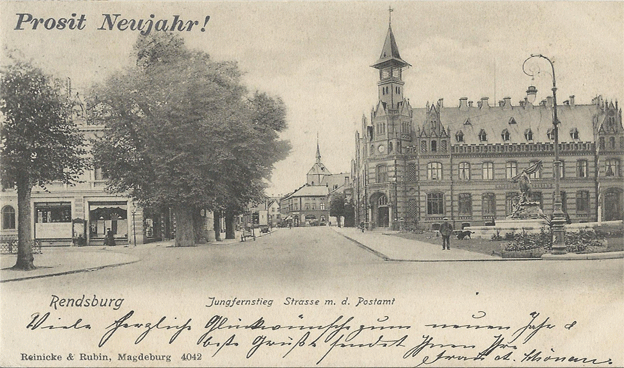 Prosit Neujahr!
Rendsburg
Jungfernstieg Strasse m. d. Postamt
Viele herzliche Glückwünsche zum neuen Jahr &
beste Grüße sendet Ihnen Ihre
Reinicke & Rubin, Magdeburg 4042